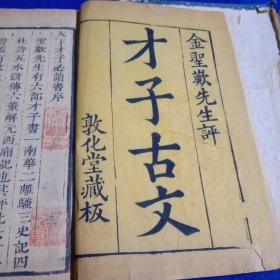 金聖歎先生評
才子古文
敦化堂藏板
天下才子必讀書序
聖歎先生有六部才子書一南華二離騷三史記四
杜詩五水滸傳六董解元西廂記也其評